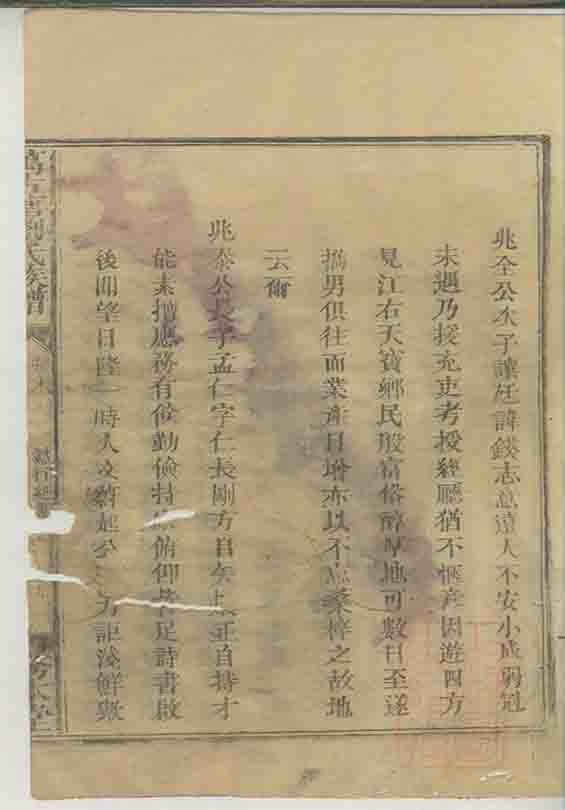 兆全公次子讓廷諱錢志意遠大不安小成弱冠
未遇乃援充吏考授經廳猶不愜意因遊四方
見江右天寶鄉民殷富俗醇厚地可數日至遂
攜男俱往而業產日增亦以不忘桑梓之故地
云爾
兆泰公長子孟仁字仁長剛方自矢正自持才
能素擅應務有位勤儉持俯仰皆足詩書啟
後聞望日隆一時人文蔚起公力詎淺鮮歟
劉氏族譜